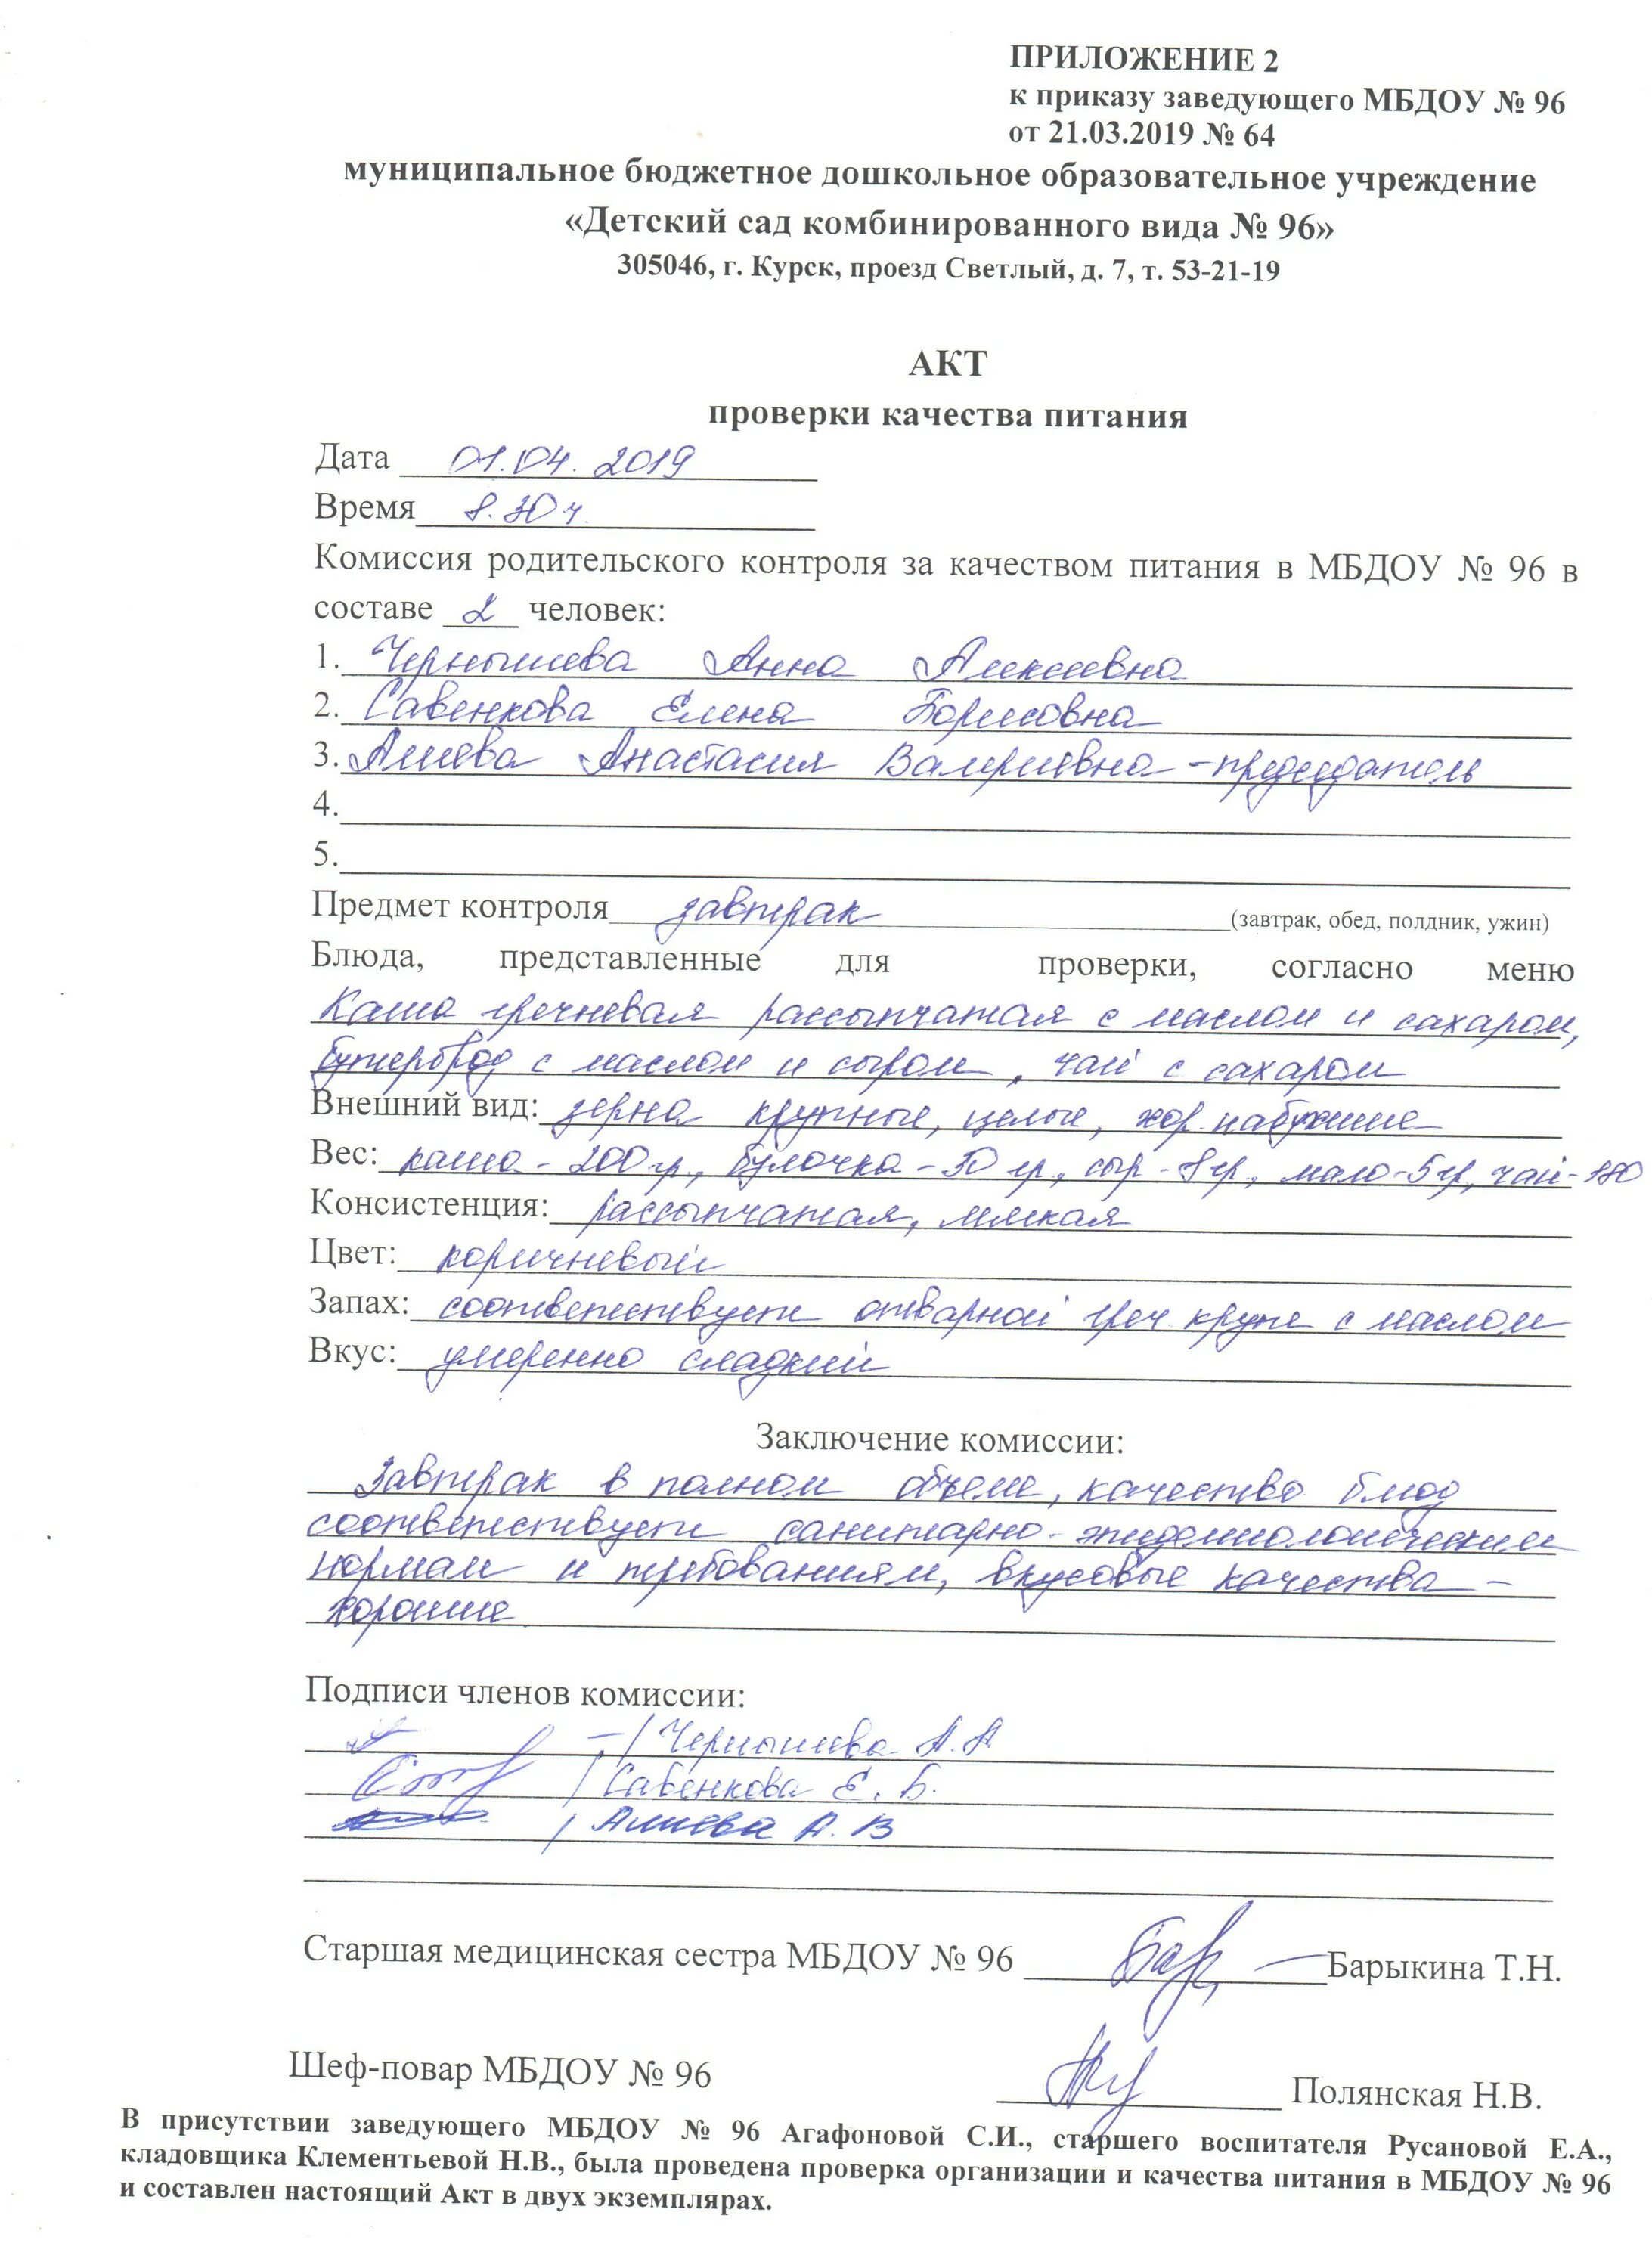 ПРИЛОЖЕНИЕ 2
к приказу заведующего МБДОУ № 96
от 21.03.2019 № 64
муниципальное бюджетное дошкольное образовательное учреждение
«Детский сад комбинированного вида № 96»
305046, г. Курск, проезд Светлый, д. 7, т. 53-21-19
АКТ
проверки качества питания
Дата 01.04.2019
Время 8.30 ч.
Комиссия родительского контроля за качеством питания в МБДОУ № 96 в
составе 2 человек:
1. Чернышева Анна Алексеевна
2. Савенкова Елена Борисовна
3. Алиева Анастасия Валериевна - председатель
4.
5.
Предмет контроля завтрак (завтрак, обед, полдник, ужин)
Блюда, представленные для проверки, согласно меню
Каша гречневая рассыпчатая с маслом и сахаром,
бутерброд с маслом и сыром, чай с сахаром
Внешний вид: зерна крупные, целые, хор. набухшие
Вес: каша - 200 гр., булочка - 30 гр., сыр - 8 гр., масло - 5 гр, чай - 180
Консистенция: рассыпчатая, мягкая
Цвет: коричневый
Запах: соответствует отварной греч. крупе с маслом
Вкус: умеренно сладкий
Заключение комиссии:
Завтрак в полном объеме, качество блюд
соответствует санитарно-эпидемиологическим
нормам и требованиям, вкусовые качества -
хорошие
Подписи членов комиссии:
/ Чернышева А.А
/ Савенкова Е. Б.
/ Алиева А. В
Старшая медицинская сестра МБДОУ № 96 Барыкина Т.Н.
Шеф-повар МБДОУ № 96 Полянская Н.В.
В присутствии заведующего МБДОУ № 96 Агафоновой С.И., старшего воспитателя Русановой Е.А.,
кладовщика Клементьевой Н.В., была проведена проверка организации и качества питания в МБДОУ № 96
и составлен настоящий Акт в двух экземплярах.